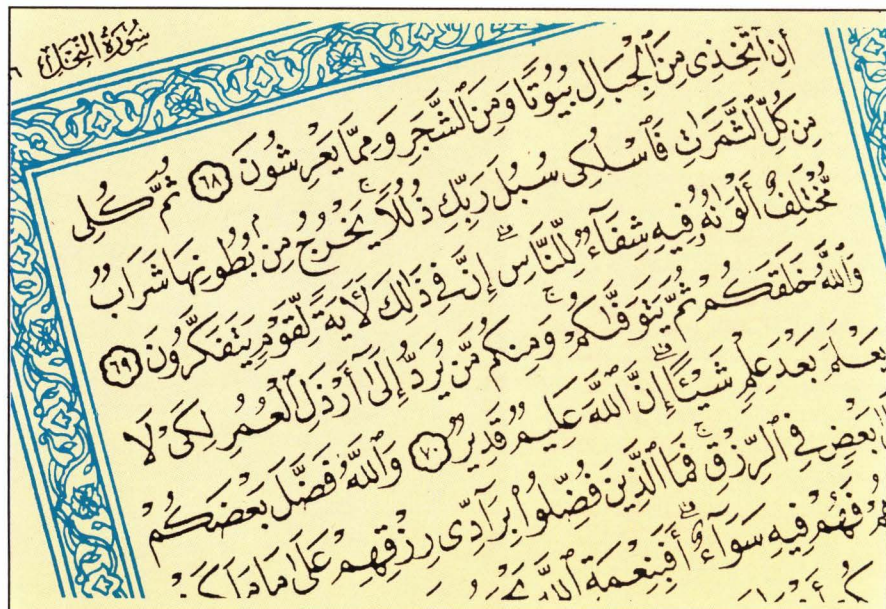 سُورَةُ النَّحْلِ
أَنِ ٱتَّخِذِى مِنَ ٱلْجِبَالِ بُيُوتًا وَمِنَ ٱلشَّجَرِ وَمِمَّا يَعْرِشُونَ ٦٨ ثُمَّ كُلِى
مِن كُلِّ ٱلثَّمَرَٰتِ فَٱسْلُكِى سُبُلَ رَبِّكِ ذُلُلًا ۚ يَخْرُجُ مِنۢ بُطُونِهَا شَرَابٌ
مُّخْتَلِفٌ أَلْوَٰنُهُۥ فِيهِ شِفَآءٌ لِّلنَّاسِ ۗ إِنَّ فِى ذَٰلِكَ لَءَايَةً لِّقَوْمٍ يَتَفَكَّرُونَ ٦٩
وَٱللَّهُ خَلَقَكُمْ ثُمَّ يَتَوَفَّىٰكُمْ ۚ وَمِنكُم مَّن يُرَدُّ إِلَىٰٓ أَرْذَلِ ٱلْعُمُرِ لِكَىْ لَا
يَعْلَمَ بَعْدَ عِلْمٍ شَيْـًٔا ۚ إِنَّ ٱللَّهَ عَلِيمٌ قَدِيرٌ ٧٠ وَٱللَّهُ فَضَّلَ بَعْضَكُمْ
بَعْضٍ فِى ٱلرِّزْقِ ۚ فَمَا ٱلَّذِينَ فُضِّلُوا۟ بِرَآدِّى رِزْقِهِمْ عَلَىٰ مَا مَلَكَتْ
فَهُمْ فِيهِ سَوَآءٌ ۚ أَفَبِنِعْمَةِ ٱللَّهِ